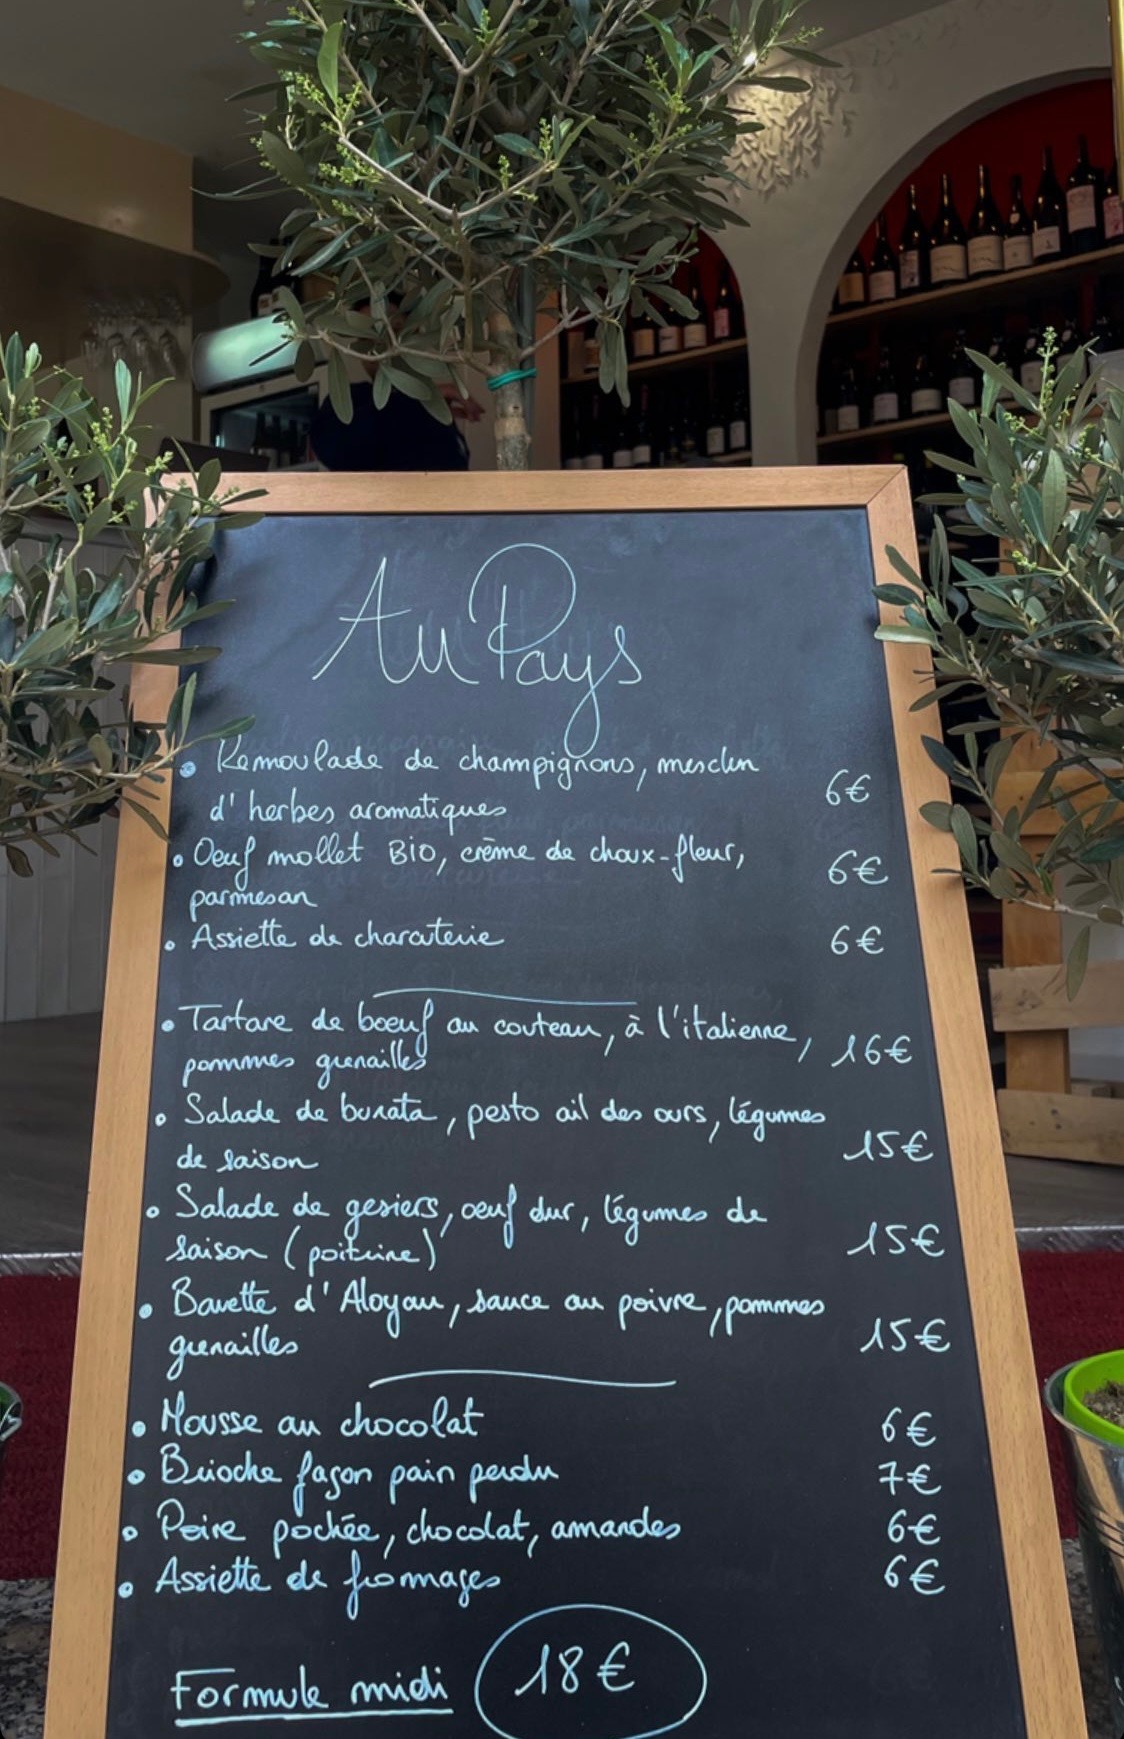 Au Pays
• Remoulade de champignons, mesclun
d'herbes aromatiques 6€
• Oeuf mollet BIO, crème de choux-fleur,
parmesan 6€
• Assiette de charcuterie 6€
• Tartare de boeuf au couteau, à l'italienne,
pommes grenailles 16€
• Salade de burata, pesto ail des ours, légumes
de saison 15€
• Salade de gesiers, oeuf dur, légumes de
saison (poitrine) 15€
• Bavette d'Aloyau, sauce au poivre, pommes
grenailles 15€
• Mousse au chocolat 6€
• Brioche façon pain perdu 7€
• Poire pochée, chocolat, amandes 6€
• Assiette de fromages 6€
Formule midi 18€